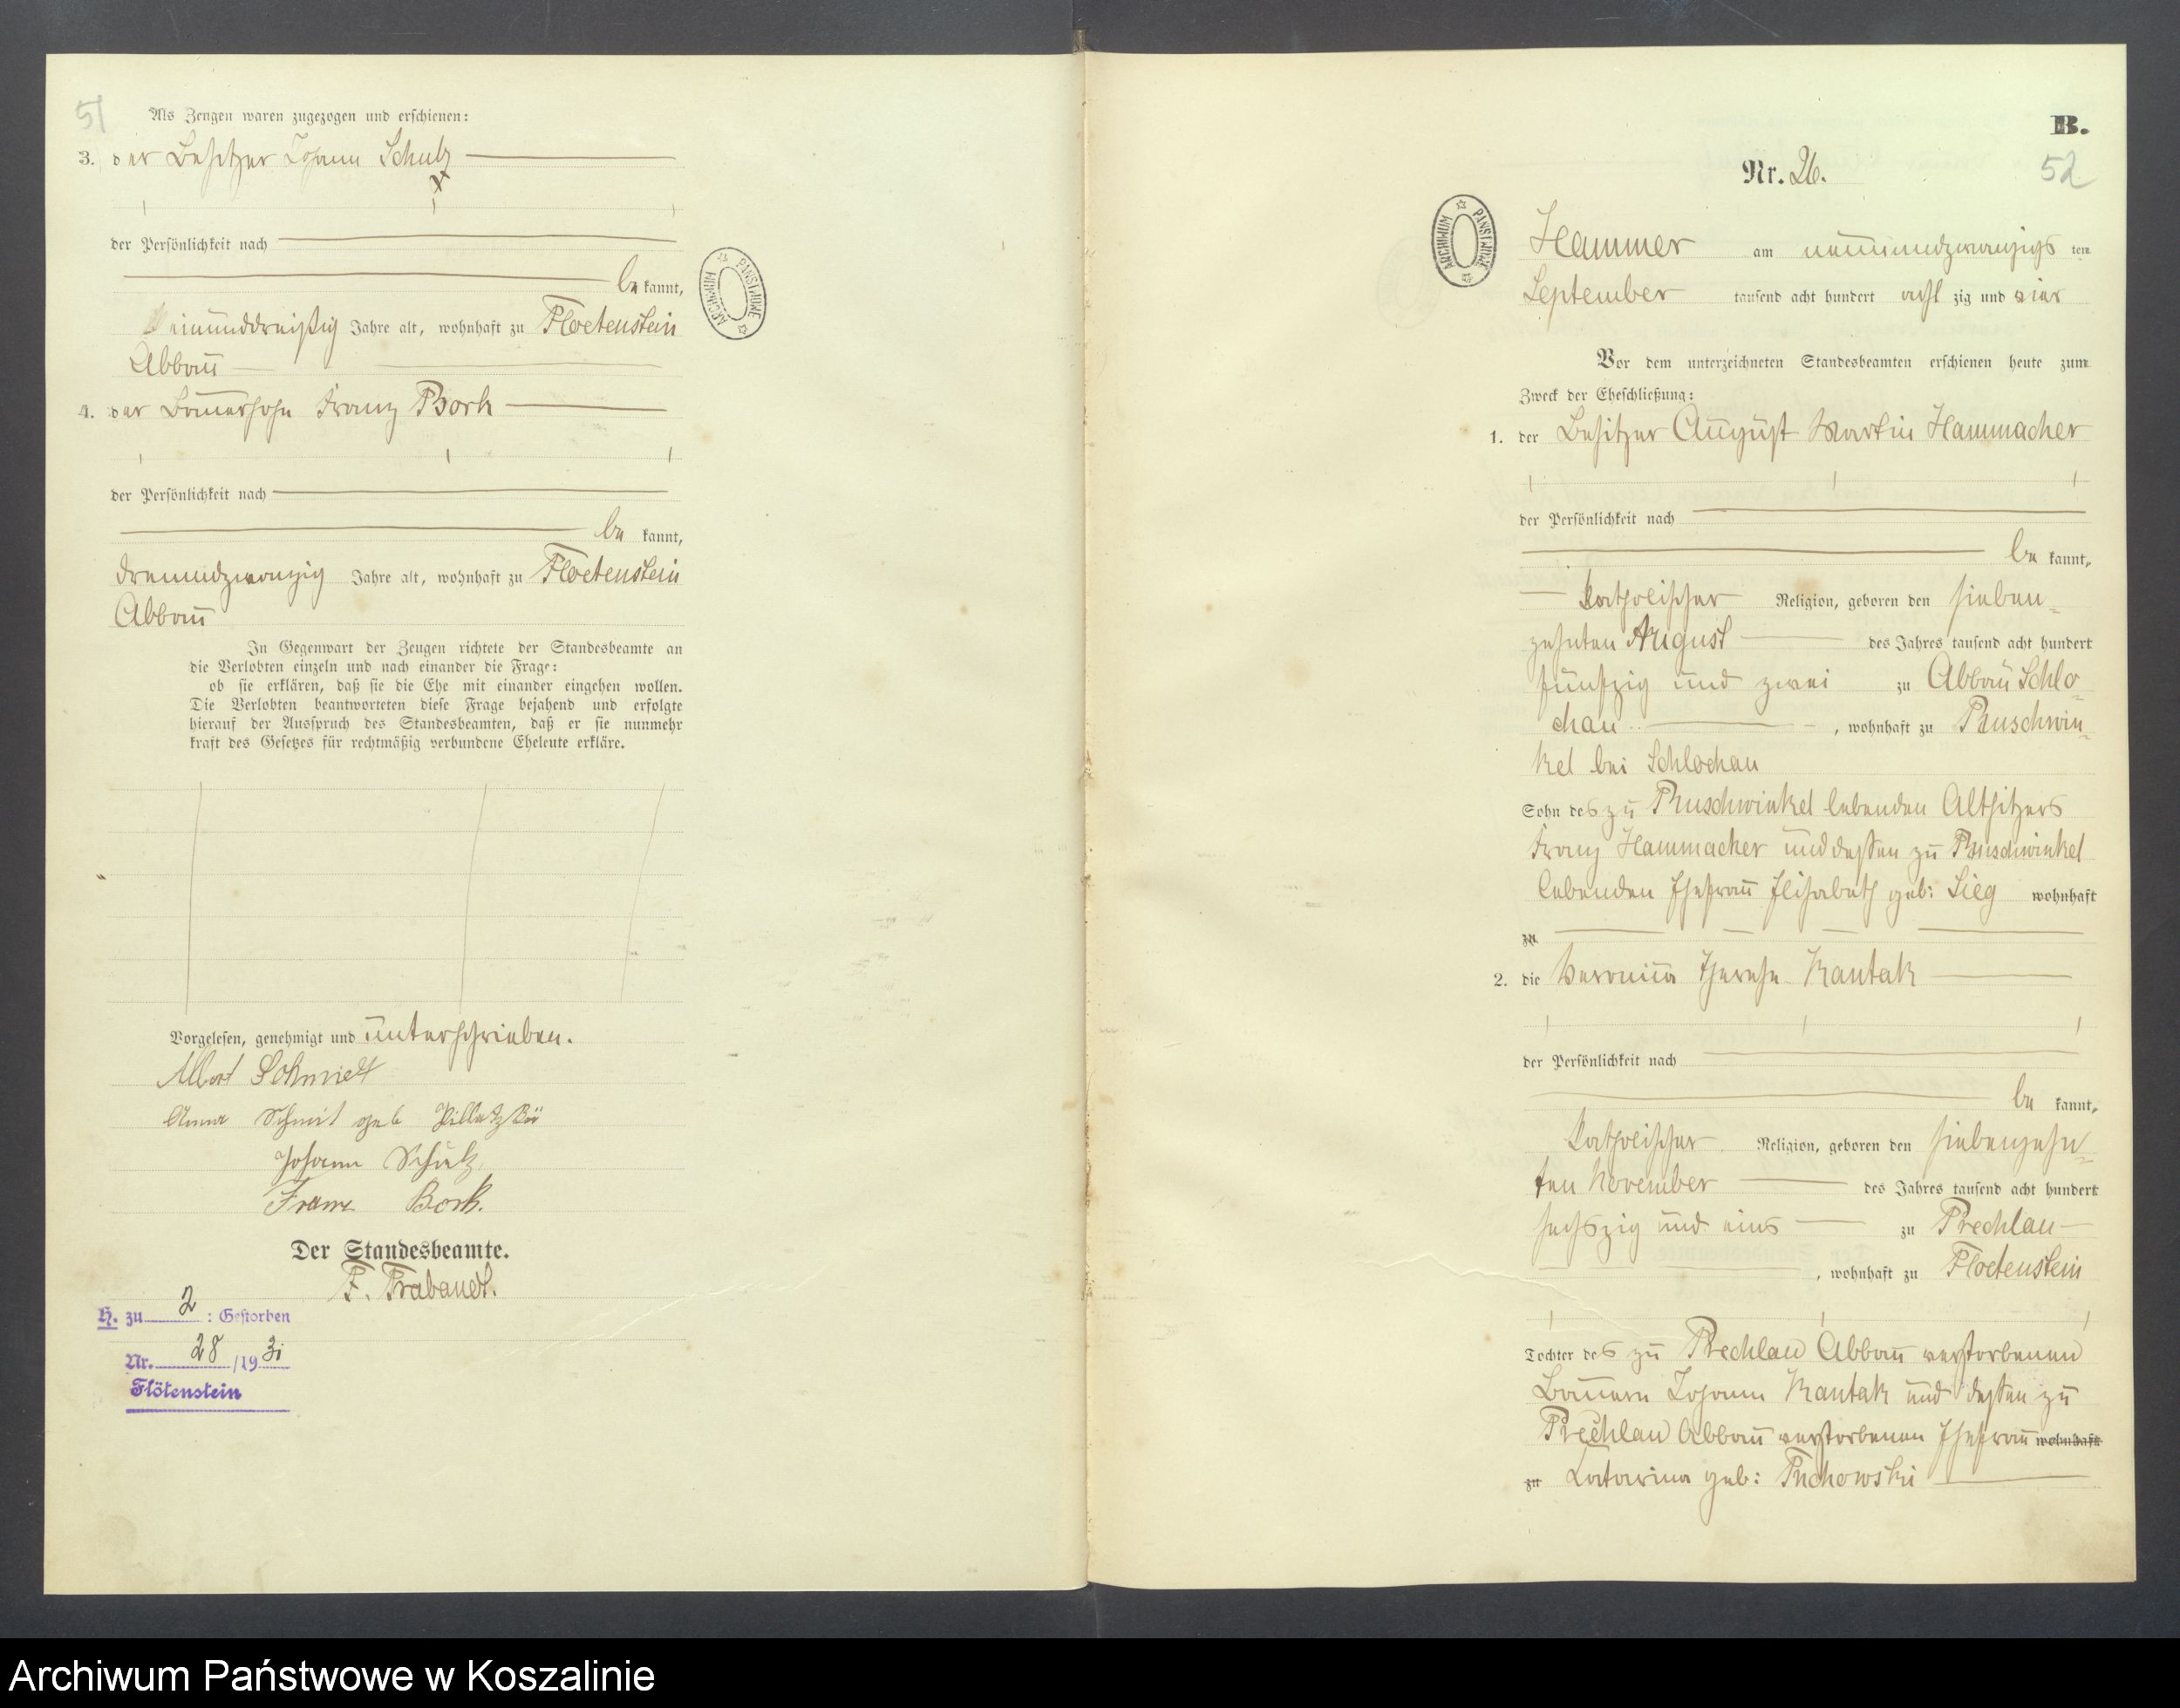 51
Als Zeugen waren zugezogen und erschienen:
3. der Besitzer Johann Schulz
der Persönlichkeit nach
be kannt,
einunddreißig Jahre alt, wohnhaft zu Floetenstein
Abbau
4. der Bauersohn Franz Bork
der Persönlichkeit nach
be kannt,
dreiundzwanzig Jahre alt, wohnhaft zu Floetenstein
Abbau
In Gegenwart der Zeugen richtete der Standesbeamte an
die Verlobten einzeln und nach einander die Frage:
ob sie erklären, daß sie die Ehe mit einander eingehen wollen.
Die Verlobten beantworteten diese Frage bejahend und erfolgte
hierauf der Ausspruch des Standesbeamten, daß er sie nunmehr
kraft des Gesetzes für rechtmäßig verbundene Eheleute erkläre.
Vorgelesen, genehmigt und unterschrieben.
Albert Schmidt
Anna Schmit geb
Johann Schulz
Franz Bork.
Der Standesbeamte.
F. Trabandt.
H. zu 2 : Gestorben
Nr. 28 /19 31
Flötenstein
ARCHIWUM PAŃSTWOWE
B.
52
Nr. 26.
ARCHIWUM PAŃSTWOWE
Hammer am neunundzwanzigs ten
September tausend acht hundert acht zig und vier
Vor dem unterzeichneten Standesbeamten erschienen heute zum
Zweck der Eheschließung:
1. der Besitzer August Martin Hammacher
der Persönlichkeit nach
be kannt,
katholischer Religion, geboren den sieben-
zehnten August des Jahres tausend acht hundert
fünfzig und zwei zu Abbau Schlo-
chau, wohnhaft zu Pruschwin-
kel bei Schlochau
Sohn des zu Pruschwinkel lebenden Altsitzers
Franz Hammacher und dessen zu Pruschwinkel
lebenden Ehefrau Elisabeth geb: Sieg wohnhaft
zu
2. die Veronica Therese Kantak
der Persönlichkeit nach
be kannt,
katholischer Religion, geboren den siebenzehn-
ten November des Jahres tausend acht hundert
sechszig und eins zu Prechlau
, wohnhaft zu Floetenstein
Tochter des zu Prechlau Abbau verstorbenen
Bauern Johann Kantak und dessen zu
Prechlau Abbau verstorbenen Ehefrau wohnhaft
zu Catarina geb:
Archiwum Państwowe w Koszalinie